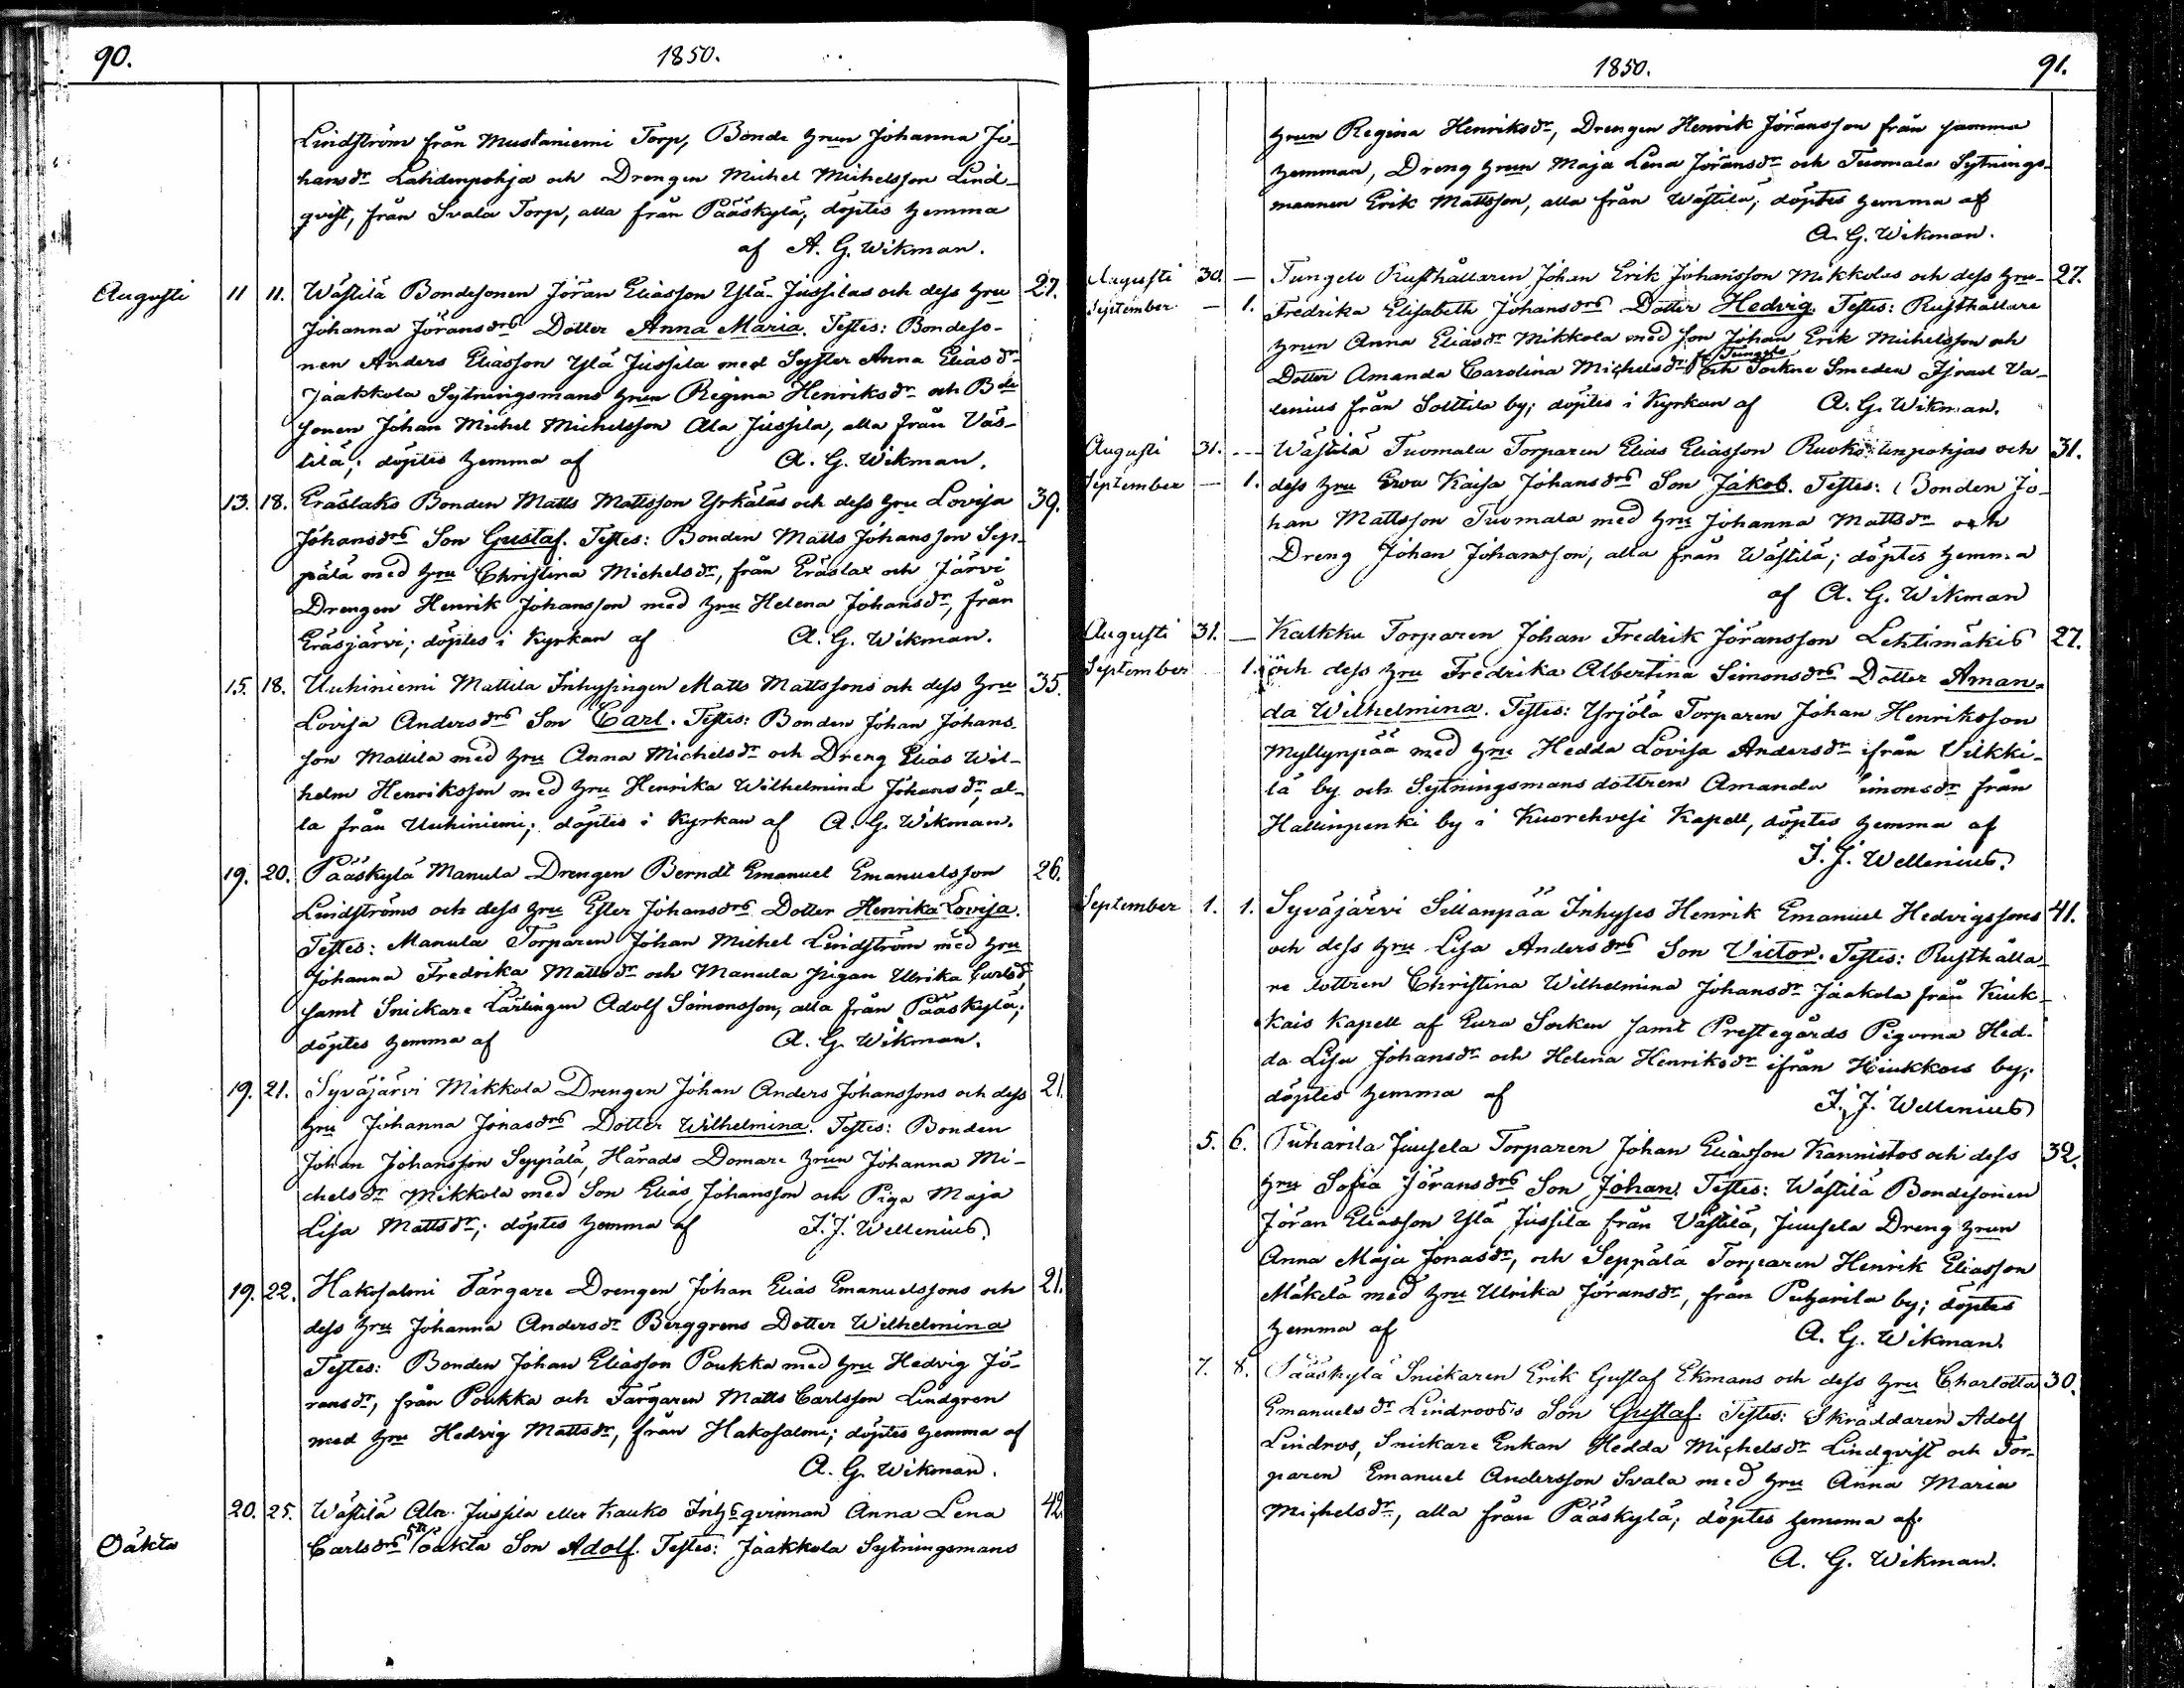 90.
1850.
Lindström från Mustaniemi Torp, Bonde hrun Johanna Jo-
hansdr Lahdenpohja och Drengen Michel Michelsson Lind-
qvist, från Svala Torp, alla från Pääskylä, döptes hemma
af A. G. Wikman.
Augusti 11 11. Wästilä Bondesonen Jöran Eliasson Ylä-Jussilas och dess hru 27.
Johanna Jöransdrs Dotter Anna Maria. Testes: Bondeso-
nen Anders Eliasson Ylä Jussila med Syster Anna Eliasdr
Jaakkola Sytningsmans hrun Regina Henriksdr och Bde
sonen Johan Michel Michelsson Ala Jussila, alla från Väs-
tilä; döptes hemma af A. G. Wikman.
13. 18. Eräslaks Bonden Matts Mattsson Yrkäläs och dess hru Lovisa 39.
Johansdrs Son Gustaf. Testes: Bonden Matts Johansson Sep-
pälä med hru Christina Michelsdr, från Eräslax och Järvi
Drengen Henrik Johansson med hru Helena Johansdr, från
Eräsjärvi; döptes i Kyrkan af A. G. Wikman.
15. 18. Uuhiniemi Mattila Inhysingen Matts Mattssons och dess hru 35.
Lovisa Andersdrs Son Carl. Testes: Bonden Johan Johans-
son Mattila med hru Anna Michelsdr och Dreng Elias Wil-
helm Henriksson med hru Henrika Wilhelmina Johansdr, al-
la från Uuhiniemi; döptes i Kyrkan af A. G. Wikman.
19. 20. Pääskylä Manula Drengen Berndt Emanuel Emanuelsson 26.
Lindströms och dess hru Ester Johansdrs Dotter Henrika Lovisa.
Testes: Manula Torparen Johan Michel Lindström med hru
Johanna Fredrika Mattsdr och Manula pigan Ulrika Carlsdr
samt Snickare Lärlingen Adolf Simonsson, alla från Pääskylä;
döptes hemma af A. G. Wikman.
19. 21. Syväjärvi Mikkola Drengen Johan Anders Johanssons och dess 21.
hru Johanna Jonasdrs Dotter Wilhelmina. Testes: Bonden
Johan Johansson Seppälä, Härads Domare hrun Johanna Mi-
chelsdr Mikkola med Son Elias Johansson och Piga Maja
Lisa Mattsdr; döptes hemma af J. J. Wellenius.
19. 22. Hakosalmi Färgare Drengen Johan Elias Emanuelssons och 21.
dess hru Johanna Andersdr Berggrens Dotter Wilhelmina
Testes: Bonden Johan Eliasson Poukka med hru Hedvig Jö-
ransdr, från Poukka och Färgaren Matts Carlsson Lindgren
med hru Hedvig Mattsdr, från Hakosalmi; döptes hemma af
A. G. Wikman.
20. 25. Wästilä Ala Jussila eller Kauko Inhysqvinnan Anna Lena 42
Oäkta Carlsdrs 5te oäkta Son Adolf. Testes: Jaakkola Sytningsmans
1850.
91.
hrun Regina Henriksdr, Drengen Henrik Jöransson från samma
hemman, Dreng hrun Maja Lena Jöransdr och Tuomala Sytnings-
mannen Erik Mattsson, alla från Wästilä; döptes hemma af
A. G. Wikman.
Augusti 30. — Tungelo Rusthållaren Johan Erik Johansson Mikkolas och dess hru- 27.
September — 1. Fredrika Elisabeth Johansdrs Dotter Hedvig. Testes: Rusthållare
hrun Anna Eliasdr Mikkola med son Johan Erik Michelsson och
Dotter Amanda Carolina Michelsdr fr Tungelo och Sockne Smeden Israel Va-
lenius från Solttila by; döptes i Kyrkan af A. G. Wikman.
Augusti 31. — Wästilä Tuomala Torparen Elias Eliasson Ruokolinpohjas och 31.
September — 1. dess hru Ewa Kaisa Johansdrs Son Jakob. Testes: Bonden Jo-
han Mattsson Tuomala med hru Johanna Mattsdr och
Dreng Johan Johansson, alla från Wästilä; döptes hemma
af A. G. Wikman
Augusti 31. — Kalkku Torparen Johan Fredrik Jöransson Lehtimäkis 27.
September 1. och dess hru Fredrika Albertina Simonsdrs Dotter Aman-
da Wilhelmina. Testes: Yrjölä Torparen Johan Henriksson
Myllynpää med hru Hedda Lovisa Andersdr ifrån Vilkki-
lä by och Sytningsmans dottren Amanda Simonsdr från
Hallinpenki by i Kuorehvesi Kapell, döptes hemma af
J. J. Wellenius.
September 1. 1. Syväjärvi Sillanpää Inhyses Henrik Emanuel Hedvigssons 41.
och dess hru Lisa Andersdrs Son Victor. Testes: Rusthålla-
re dottren Christina Wilhelmina Johansdr Jaakola från Kiuk-
kais Kapell af Eura Socken samt Prestegårds Pigorna Hed-
da Lisa Johansdr och Helena Henriksdr ifrån Kiukkois by;
döptes hemma af J. J. Wellenius
5. 6. Puharila Juusela Torparen Johan Eliasson Kannistos och dess 32.
hru Sofia Jöransdrs Son Johan. Testes: Wästilä Bondesonen
Jöran Eliasson Ylä Jussila från Västilä, Juusela Dreng hrun
Anna Maja Jonasdr, och Seppälä Torparen Henrik Eliasson
Mäkelä med hru Ulrika Jöransdr, från Puharila by; döptes
hemma af A. G. Wikman.
7. 8. Pääskylä Snickaren Erik Gustaf Ekmans och dess hru Charlotta 30.
Emanuelsdr Lindroos's Son Gustaf. Testes: Skräddaren Adolf
Lindros, Snickare Enkan Hedda Michelsdr Lindqvist och Tor-
paren Emanuel Andersson Svala med hru Anna Maria
Michelsdr, alla från Pääskylä; döptes hemma af
A. G. Wikman.